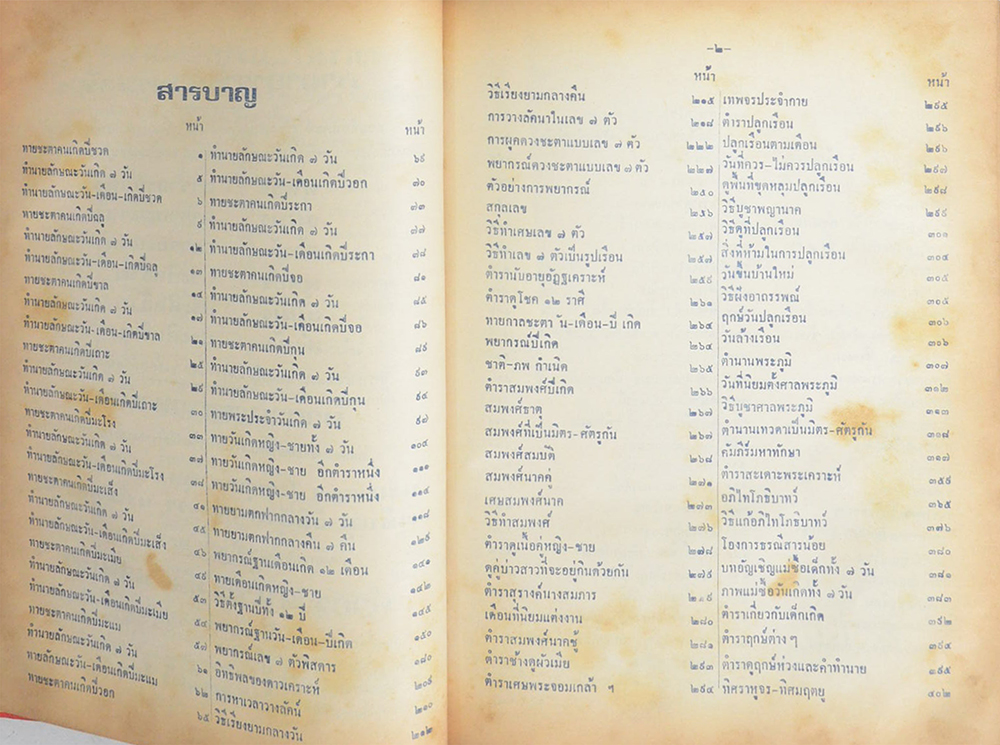 สารบาญ
หน้า
ทายชะตาคนเกิดปีชวด ๑
ทำนายลักษณะวันเกิด ๗ วัน ๕
ทำนายลักษณะวัน-เดือน-เกิดปีชวด ๖
ทายชะตาคนเกิดปีฉลู ๙
ทำนายลักษณะวันเกิด ๗ วัน ๑๒
ทำนายลักษณะวัน-เดือน-เกิดปีฉลู ๑๓
ทายชะตาคนเกิดปีขาล ๑๔
ทำนายลักษณะวันเกิด ๗ วัน ๑๗
ทำนายลักษณะวัน-เดือน-เกิดปีขาล ๒๑
ทายชะตาคนเกิดปีเถาะ ๒๕
ทำนายลักษณะวันเกิด ๗ วัน ๒๙
ทำนายลักษณะวัน-เดือนเกิดปีเถาะ ๓๐
ทายชะตาคนเกิดปีมะโรง ๓๓
ทำนายลักษณะวันเกิด ๗ วัน ๓๗
ทำนายลักษณะวัน-เดือนเกิดปีมะโรง ๓๘
ทายชะตาคนเกิดปีมะเส็ง ๔๑
ทำนายลักษณะวันเกิด ๗ วัน ๔๕
ทำนายลักษณะวัน-เดือนเกิดปีมะเส็ง ๔๖
ทายชะตาคนเกิดปีมะเมีย ๔๙
ทำนายลักษณะวันเกิด ๗ วัน ๕๓
ทำนายลักษณะวัน-เดือนเกิดปีมะเมีย ๕๔
ทายชะตาคนเกิดปีมะแม ๕๗
ทำนายลักษณะวันเกิด ๗ วัน ๖๑
ทายลักษณะวัน-เดือนเกิดปีมะแม ๖๒
ทายชะตาคนเกิดปีวอก ๖๕
หน้า
ทำนายลักษณะวันเกิด ๗ วัน ๖๙
ทำนายลักษณะวัน-เดือนเกิดปีวอก ๗๐
ทายชะตาคนเกิดปีระกา ๗๓
ทำนายลักษณะวันเกิด ๗ วัน ๗๗
ทำนายลักษณะวัน-เดือนเกิดปีระกา ๗๘
ทายชะตาคนเกิดปีจอ ๘๑
ทำนายลักษณะวันเกิด ๗ วัน ๘๕
ทำนายลักษณะวัน-เดือนเกิดปีจอ ๘๖
ทายชะตาคนเกิดปีกุน ๘๙
ทำนายลักษณะวันเกิด ๗ วัน ๙๓
ทำนายลักษณะวัน-เดือนเกิดปีกุน ๙๔
ทายพระประจำวันเกิด ๗ วัน ๙๗
ทายวันเกิดหญิง-ชายทั้ง ๗ วัน ๑๐๔
ทายวันเกิดหญิง-ชาย อีกตำราหนึ่ง ๑๑๑
ทายวันเกิดหญิง-ชาย อีกตำราหนึ่ง ๑๑๔
ทายยามตกฟากกลางวัน ๗ วัน ๑๑๘
ทายยามตกฟากกลางคืน ๗ คืน ๑๒๙
พยากรณ์ฐานเดือนเกิด ๑๒ เดือน ๑๔๑
ทายเดือนเกิดหญิง-ชาย ๑๔๒
วิธีตั้งฐานปีทั้ง ๑๒ ปี ๑๔๕
พยากรณ์ฐานวัน-เดือน-ปีเกิด ๑๕๐
พยากรณ์เลข ๗ ตัวพิสดาร ๑๘๐
อิทธิพลของดาวเคราะห์ ๒๐๙
การหาเวลาวางลัคน์ ๒๑๐
วิธีเรียงยามกลางวัน ๒๑๒
-๒-
หน้า
วิธีเรียงยามกลางคืน ๒๑๕
การวางลัคนาในเลข ๗ ตัว ๒๑๘
การผูกดวงชะตาแบบเลข ๗ ตัว ๒๒๒
พยากรณ์ดวงชะตาแบบเลข ๗ ตัว ๒๒๗
ตัวอย่างการพยากรณ์ ๒๕๐
สกุลเลข ๒๕๖
วิธีทำเศษเลข ๗ ตัว ๒๕๗
วิธีทำเลข ๗ ตัวเป็นรูปเรือน ๒๕๗
ตำรานับอายุอัฏฐเคราะห์ ๒๕๙
ตำราดูโชค ๑๒ ราศี ๒๖๑
ทายกาลชะตา วัน-เดือน-ปี เกิด ๒๖๔
พยากรณ์ปีเกิด ๒๖๔
ชาติ-ภพ กำเนิด ๒๖๕
ตำราสมพงศ์ปีเกิด ๒๖๖
สมพงศ์ธาตุ ๒๖๗
สมพงศ์ที่เป็นมิตร-ศัตรูกัน ๒๖๗
สมพงศ์สมบัติ ๒๖๘
สมพงศ์นาคคู่ ๒๗๑
เศษสมพงศ์นาค ๒๗๓
วิธีทำสมพงศ์ ๒๗๖
ตำราดูเนื้อคู่หญิง-ชาย ๒๗๘
ดูคู่บ่าวสาวที่จะอยู่กินด้วยกัน ๒๗๙
ตำราสุรางค์นางสมภาร ๒๗๙
เดือนที่นิยมแต่งงาน ๒๘๐
ตำราสมพงศ์นาคชู้ ๒๘๑
ตำราช้างดูผัวเมีย ๒๙๓
ตำราเศษพระจอมเกล้า ฯ ๒๙๔
หน้า
เทพจรประจำกาย ๒๙๕
ตำราปลูกเรือน ๒๙๖
ปลูกเรือนตามเดือน ๒๙๖
วันที่ควร-ไม่ควรปลูกเรือน ๒๙๗
ดูพื้นที่ขุดหลุมปลูกเรือน ๒๙๘
วิธีบูชาพญานาค ๒๙๙
วิธีดูที่ปลูกเรือน ๓๐๑
สิ่งที่ห้ามในการปลูกเรือน ๓๐๔
วันขึ้นบ้านใหม่ ๓๐๕
วิธีฝังอาถรรพณ์ ๓๐๕
ฤกษ์วันปลูกเรือน ๓๐๖
วันล้างเรือน ๓๑๖
ตำนานพระภูมิ ๓๐๗
วันที่นิยมตั้งศาลพระภูมิ ๓๑๒
วิธีบูชาศาลพระภูมิ ๓๑๓
ตำนานเทวดาเป็นมิตร-ศัตรูกัน ๓๑๘
คัมภีร์มหาทักษา ๓๑๗
ตำราสะเดาะพระเคราะห์ ๓๕๙
อภิไทโภธิบาทว์ ๓๖๕
วิธีแก้อภิไทโภธิบาทว์ ๓๗๖
โองการธรณีสารน้อย ๓๘๐
บทอัญเชิญแม่ซื้อเด็กทั้ง ๗ วัน ๓๘๑
ภาพแม่ซื้อวันเกิดทั้ง ๗ วัน ๓๘๓
ตำราเกี่ยวกับเด็กเกิด ๓๙๒
ตำราฤกษ์ต่างๆ
ตำราดูฤกษ์ห่วงและคำทำนาย ๓๙๕
ทิศราหูจร-ทิศมฤตยู ๔๐๒